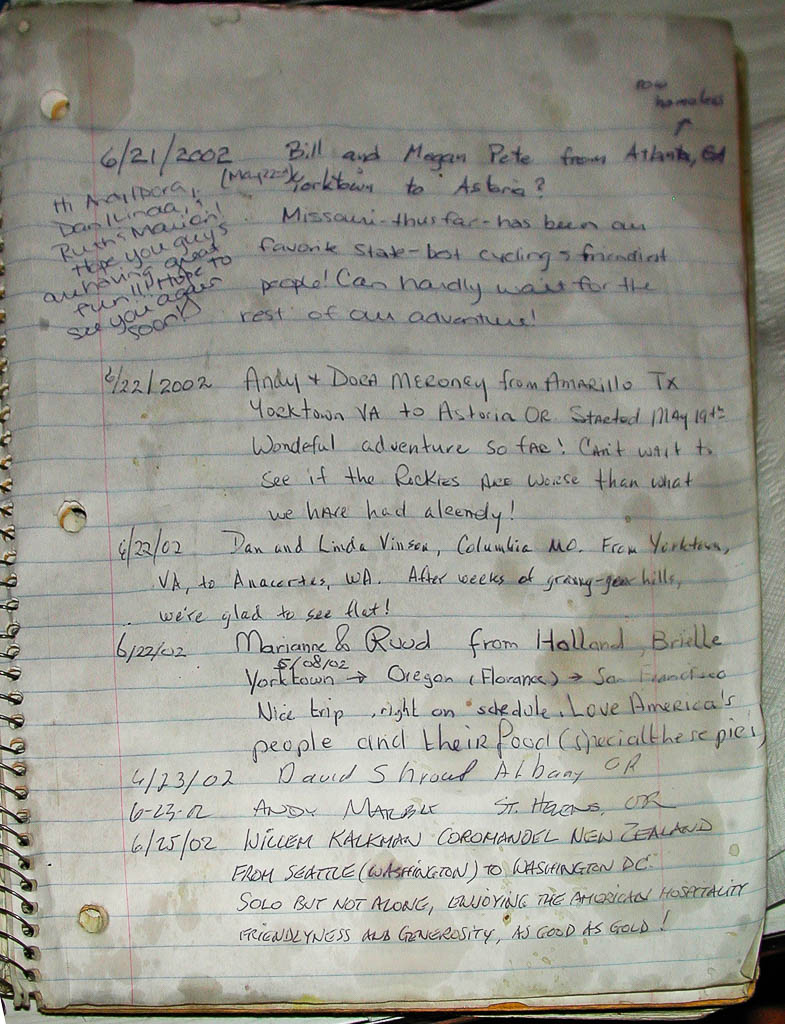 now
homeless
6/21/2002 Bill and Megan Pete from Atlanta, GA
(May 22nd) Yorktown to Astoria?
Hi Andy/Dora,
Dan/Linda,
Ruth & Marion!
Hope you guys
are having great
fun!!! Hope to
see you again
soon!
Missouri-thus far-has been our
favorite state-bot cycling & friendliest
people! Can hardly wait for the
rest of our adventure!
6/22/2002 Andy + Dora Meroney from Amarillo TX
Yorktown VA to Astoria OR Started May 19th
Wondeful adventure so far! Can't wait to
see if the Rockies are worse than what
we have had already!
6/22/02 Dan and Linda Vinson, Columbia MO. From Yorktown,
VA, to Anacortes, WA. After weeks of granny-gear hills,
we're glad to see flat!
6/22/02 Marianne & Ruud from Holland, Brielle
5/08/02
Yorktown → Oregon (Florance) → San Francisco
Nice trip, right on schedule. Love America's
people and their food (specialthese pie's)
6/23/02 David Shroud Albany OR
6-23-02 ANDY MARBLE ST. HELENS, OR
6/25/02 WILLEM KALKMAN COROMANDEL NEW ZEALAND
FROM SEATTLE (WASHINGTON) TO WASHINGTON DC.
SOLO BUT NOT ALONE, ENJOYING THE AMERICAN HOSPITALITY
FRIENDLYNESS AND GENEROSITY, AS GOOD AS GOLD!